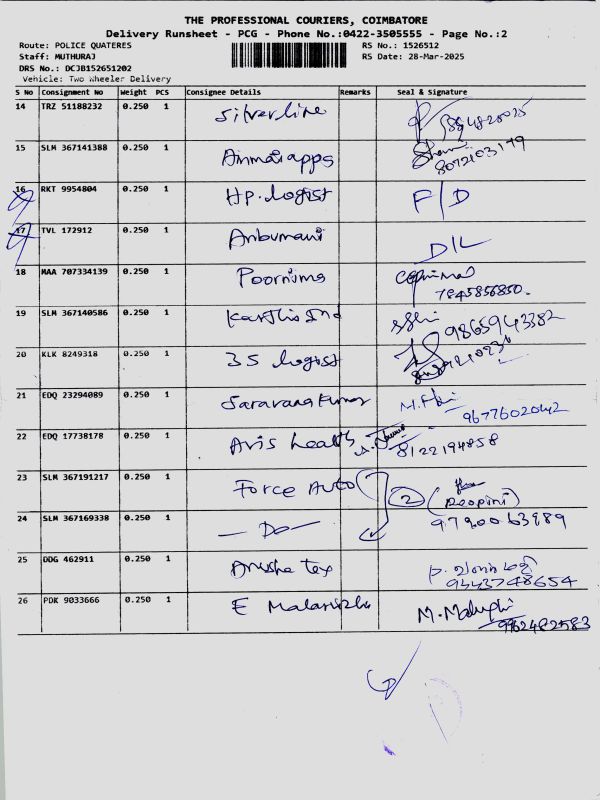 THE PROFESSIONAL COURIERS, COIMBATORE
Delivery Runsheet - PCG - Phone No.:0422-3505555 - Page No.:2
Route: POLICE QUATERES
RS No.: 1526512
Staff: MUTHURAJ
RS Date: 28-Mar-2025
DRS No.: DCJB152651202
Vehicle: Two Wheeler Delivery
S No Consignment No Weight PCS Consignee Details Remarks Seal & Signature
14 TRZ 51188232 0.250 1 Silverline
15 SLM 367141388 0.250 1 Ammaiapps 8072103179
16 RKT 9954804 0.250 1 HP. logist F/D
17 TVL 172912 0.250 1 Anbumani D/L
18 MAA 707334139 0.250 1 Poornima 7845856850.
19 SLM 367140586 0.250 1 Karthis Ind 9865943382
20 KLK 8249318 0.250 1 3S logist
21 EDQ 23294089 0.250 1 Saravana Kumar 9677602042
22 EDQ 17738178 0.250 1 Avis health 8122194858
23 SLM 367191217 0.250 1 Force Auto 2
24 SLM 367169338 0.250 1 — Do — 9790063989
25 DDG 462911 0.250 1 Anusha Tex 9443748654
26 PDK 9033666 0.250 1 E 9962482583